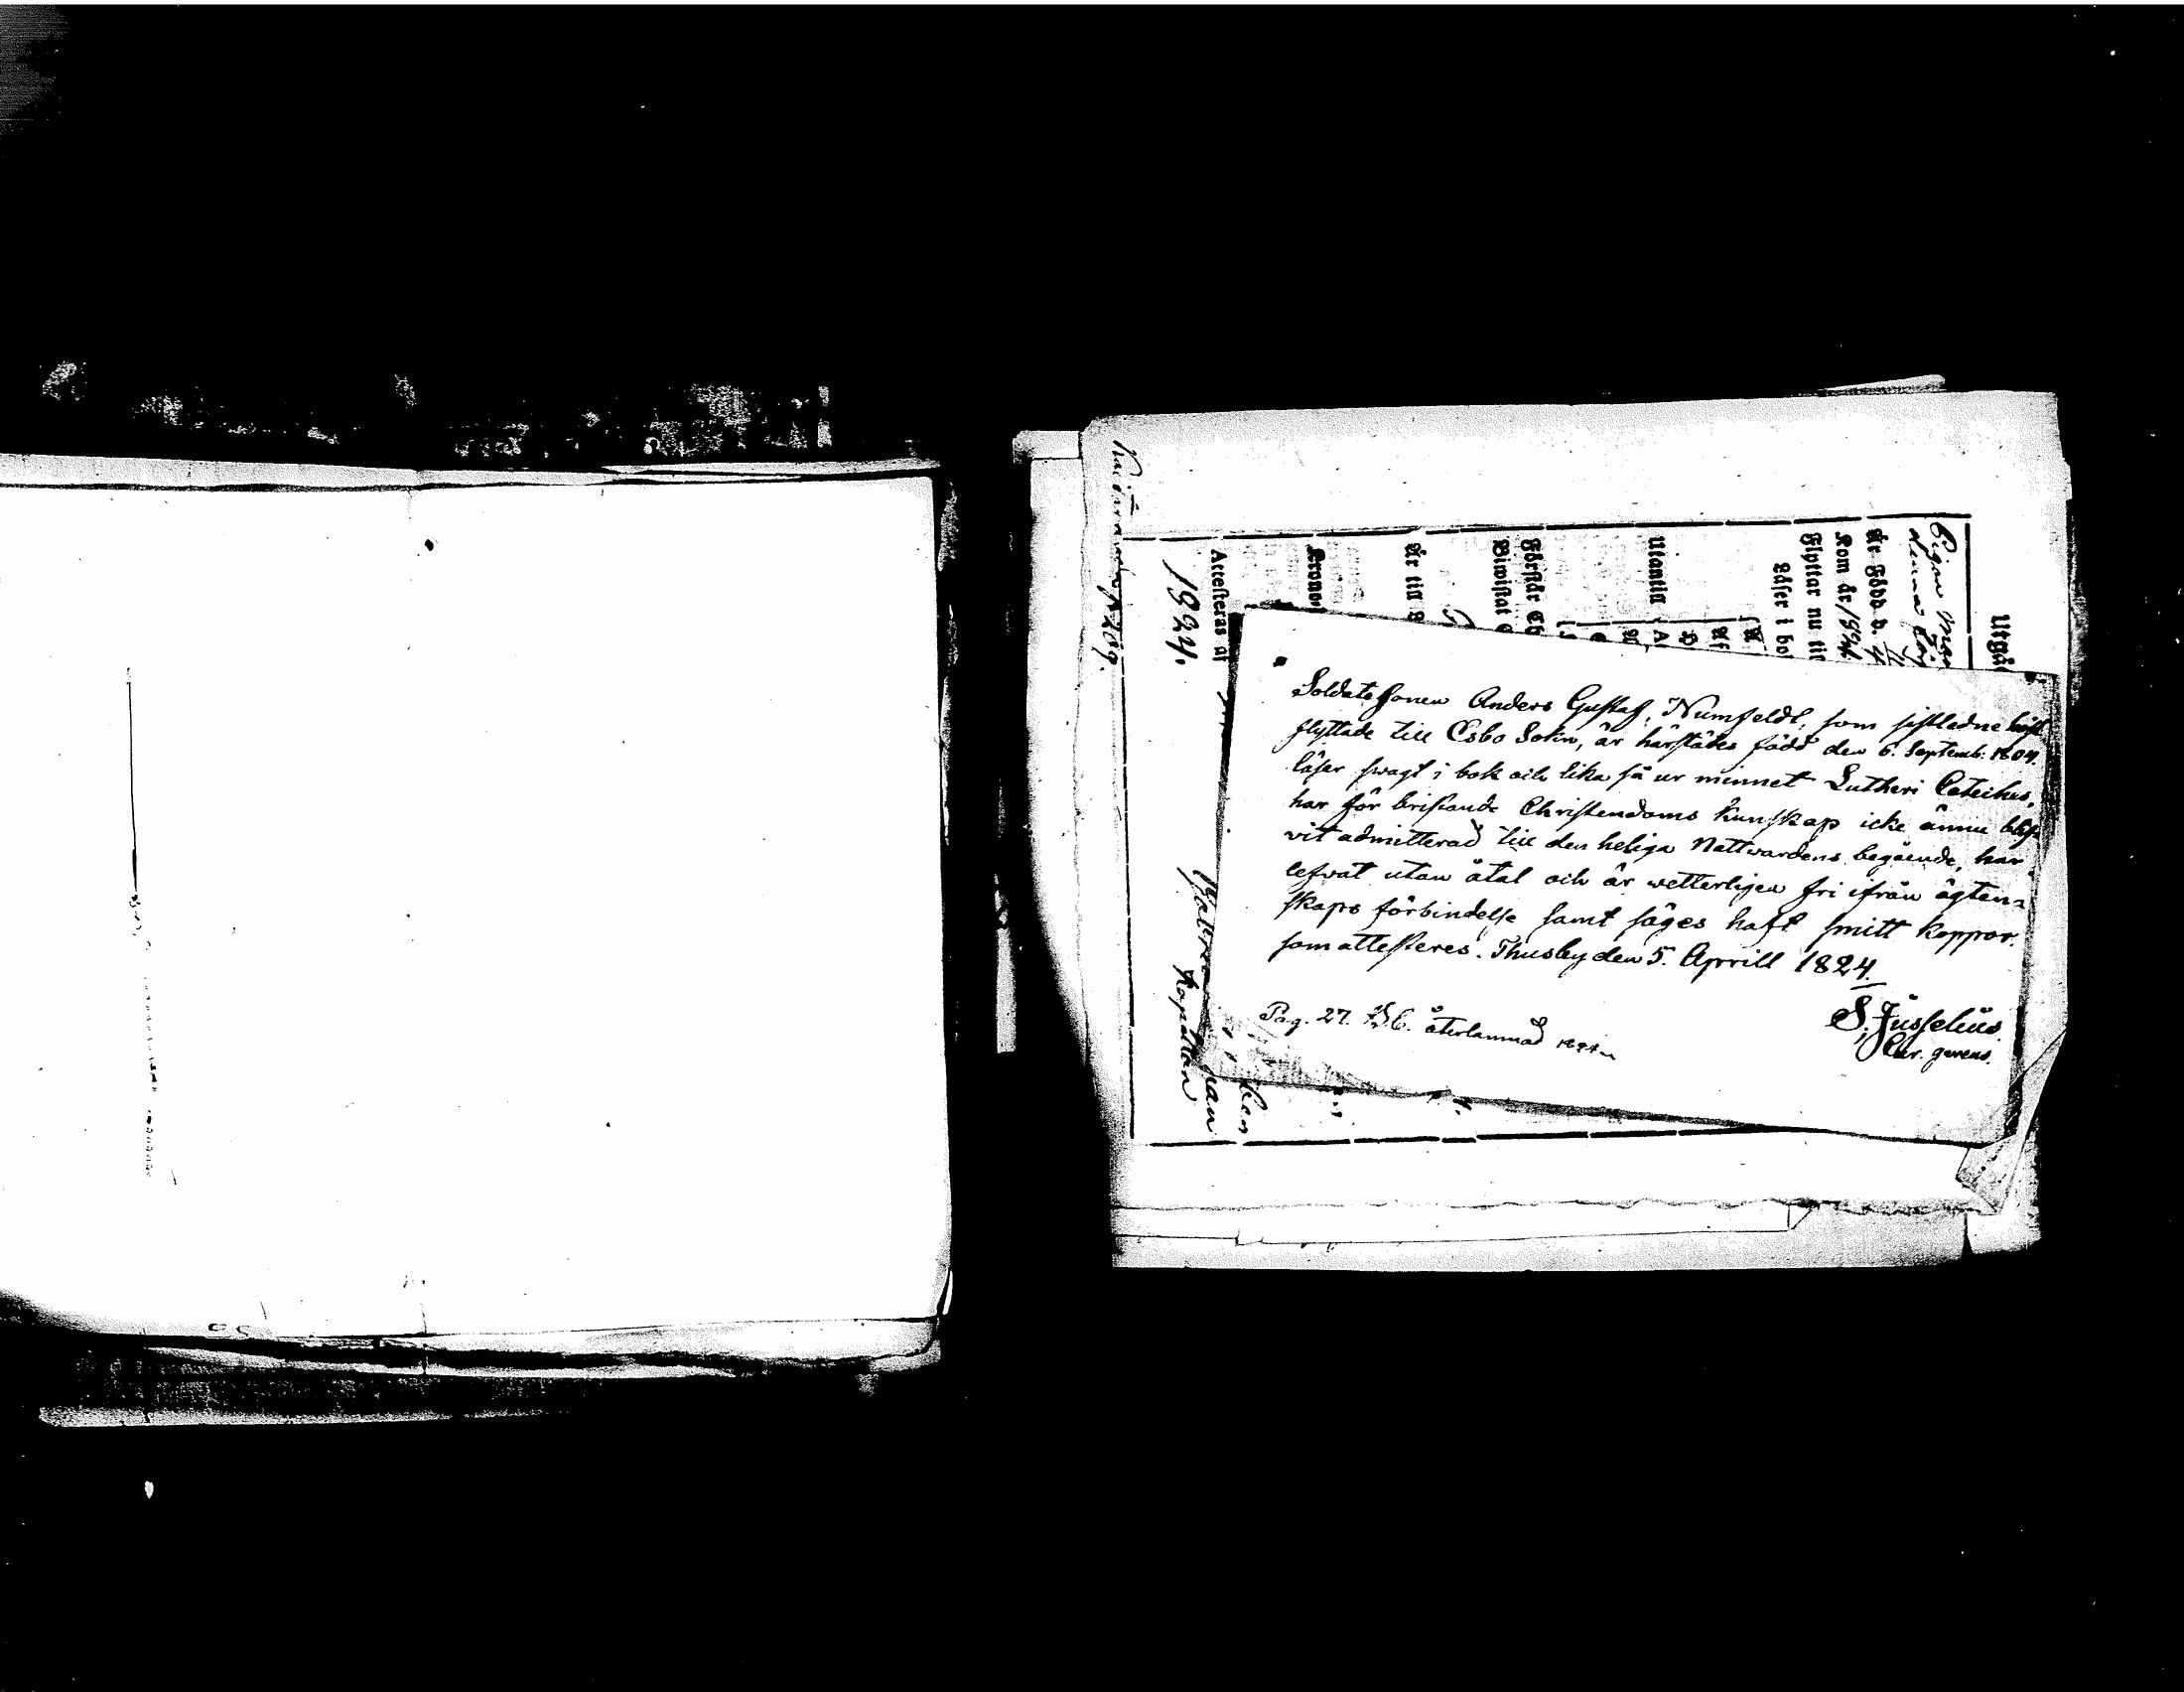 Soldatesonen Anders Gustaf, Numfeldt, som sistledne höst
flyttade till Esbo Sokn, är härstädes född den 6. Septemb: 1804.
läser swagt i bok och lika så ur minnet Lutheri Cateches,
har för bristande Christendoms kunskap icke ännu blif-
vit admitterad till den heliga Nattwardens begående, har
lefvat utan åtal och är wetterligen fri ifrån ägten=
skaps förbindelse samt säges haft smitt koppor.
som attesteres. Thusby den 5. Aprill 1824.
S, Jusselius
Cur. gerens.
Pag. 27. återlämnad
Utgå
Pigan
Är Född d. 4
Kom år 1824
Flyttar nu til
Läser i bo
Utantill
Förstår Ch
Biwistat
Är till
Krono
Attesteras af
1824.
Kapellan